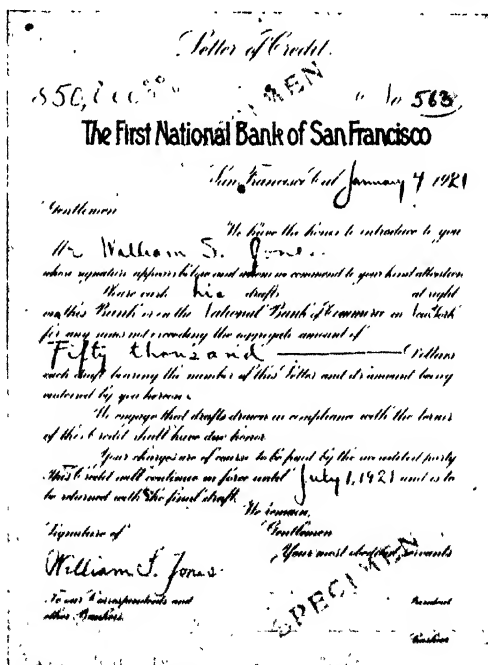 Letter of Credit.
$50,000.00 No 563
SPECIMEN
The First National Bank of San Francisco
San Francisco Cal January 7 1921
Gentlemen
We have the honor to introduce to you
Mr William S. Jones
whose signature appears below and whom we commend to your kind attention
Please cash his drafts at sight
on this Bank or on the National Bank of Commerce in New York
for any sums not exceeding the aggregate amount of
Fifty thousand Dollars
each draft bearing the number of this Letter and its amount being
endorsed by you hereon.
We engage that drafts drawn in compliance with the terms
of this Credit shall have due honor
Your charges are of course to be paid by the accredited party
This Credit will continue in force until July 1, 1921 and is to
be returned with the final draft.
We remain,
Signature of Gentlemen
Your most obedient servants
William S. Jones.
SPECIMEN
To our Correspondents and President
other Bankers.
Cashier